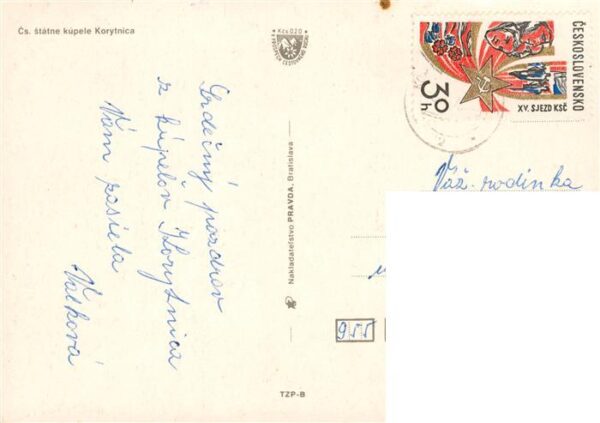 Čs. štátne kúpele Korytnica
Kčs 0.20
ČESKOSLOVENSKO
30
h
XV. SJEZD KSČ
Srdečný pozdrav
z kúpeľov Korytnica
Vám zasiela
Valková
Nakladateľstvo PRAVDA, Bratislava
TZP-B
Váž. rodinka
955